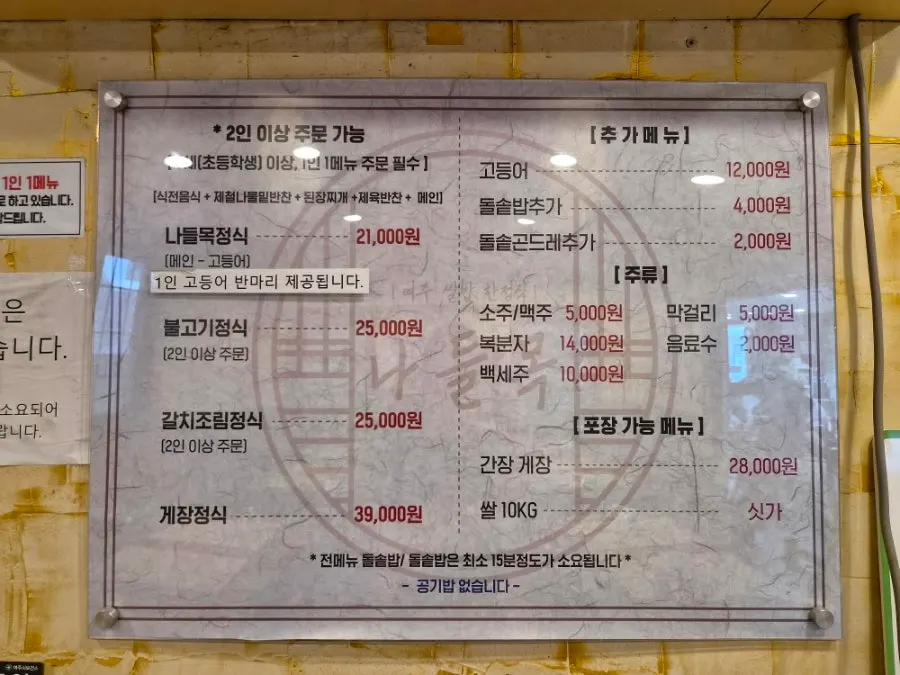 * 2인 이상 주문 가능
(초등학생) 이상, 1인 1메뉴 주문 필수 ]
[식전음식 + 제철나물밑반찬 + 된장찌개 +제육반찬 + 메인]
나들목정식 21,000원
(메인 - 고등어)
1인 고등어 반마리 제공됩니다.
불고기정식 25,000원
(2인 이상 주문)
갈치조림정식 25,000원
(2인 이상 주문)
게장정식 39,000원
[ 추가메뉴 ]
고등어 12,000원
돌솥밥추가 4,000원
돌솥곤드레추가 2,000원
[ 주류 ]
소주/맥주 5,000원 막걸리 5,000원
복분자 14,000원 음료수 2,000원
백세주 10,000원
[ 포장 가능 메뉴 ]
간장 게장 28,000원
쌀 10KG 싯가
* 전메뉴 돌솥밥/ 돌솥밥은 최소 15분정도가 소요됩니다 *
- 공기밥 없습니다 -
나들목
1인 1메뉴
로 하고 있습니다.
드립니다.
은
습니다.
소요되어
랍니다.